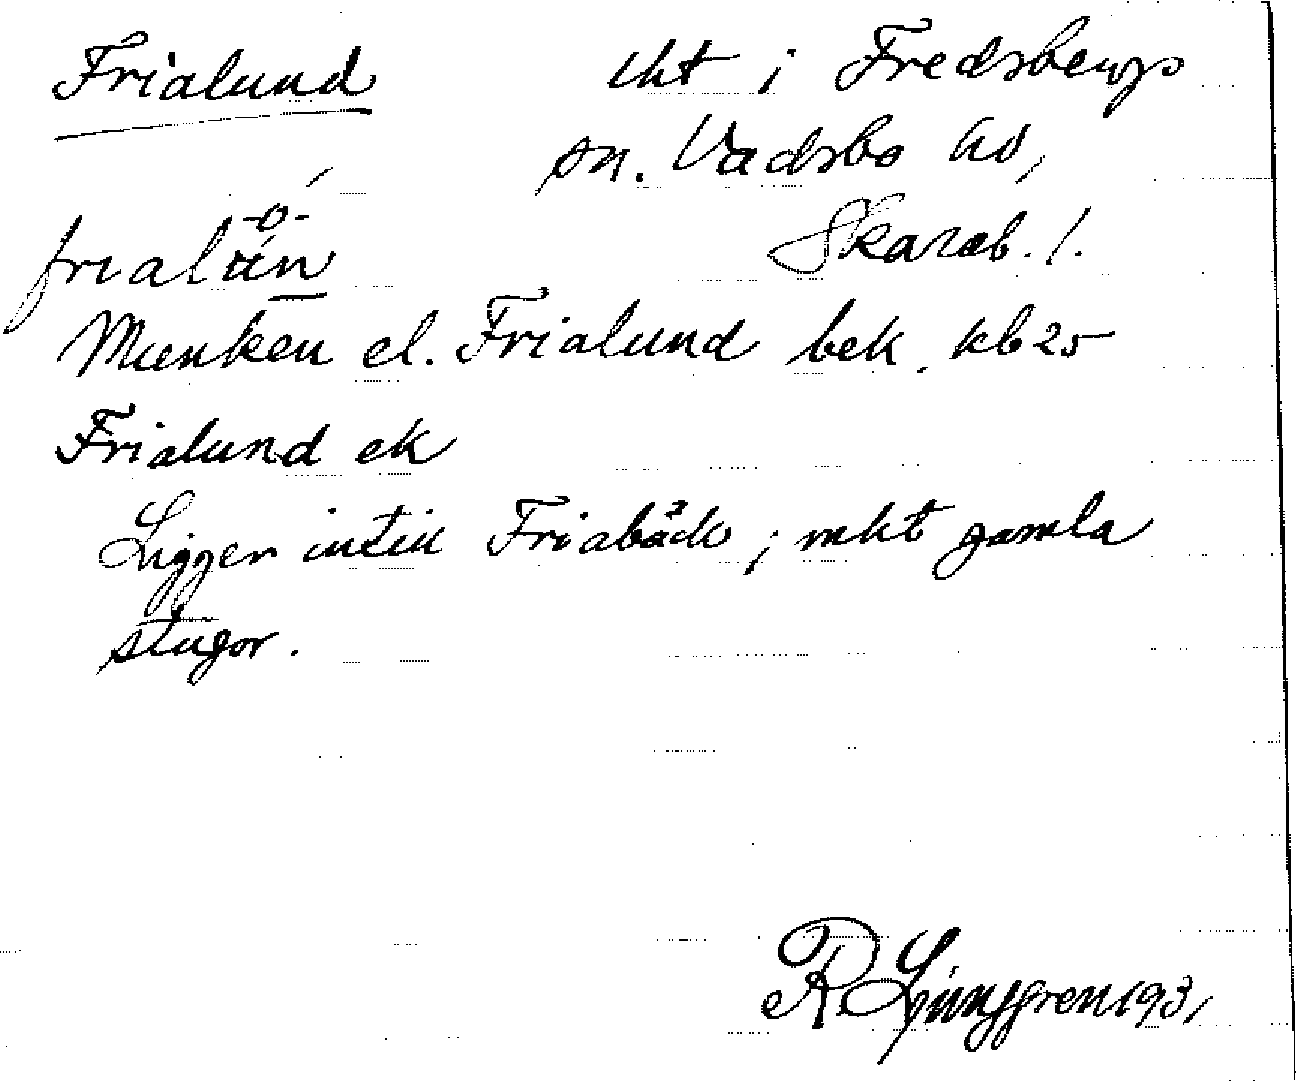 Frialund lht i Fredsbergs
sn. Vadsbo hd,
Skarab. l.
-o-
frialún
Munken el. Frialund bek. kb 25
Frialund ek
Ligger intill Friabäck; mkt gamla
stugor.
R Ljunggren 1931